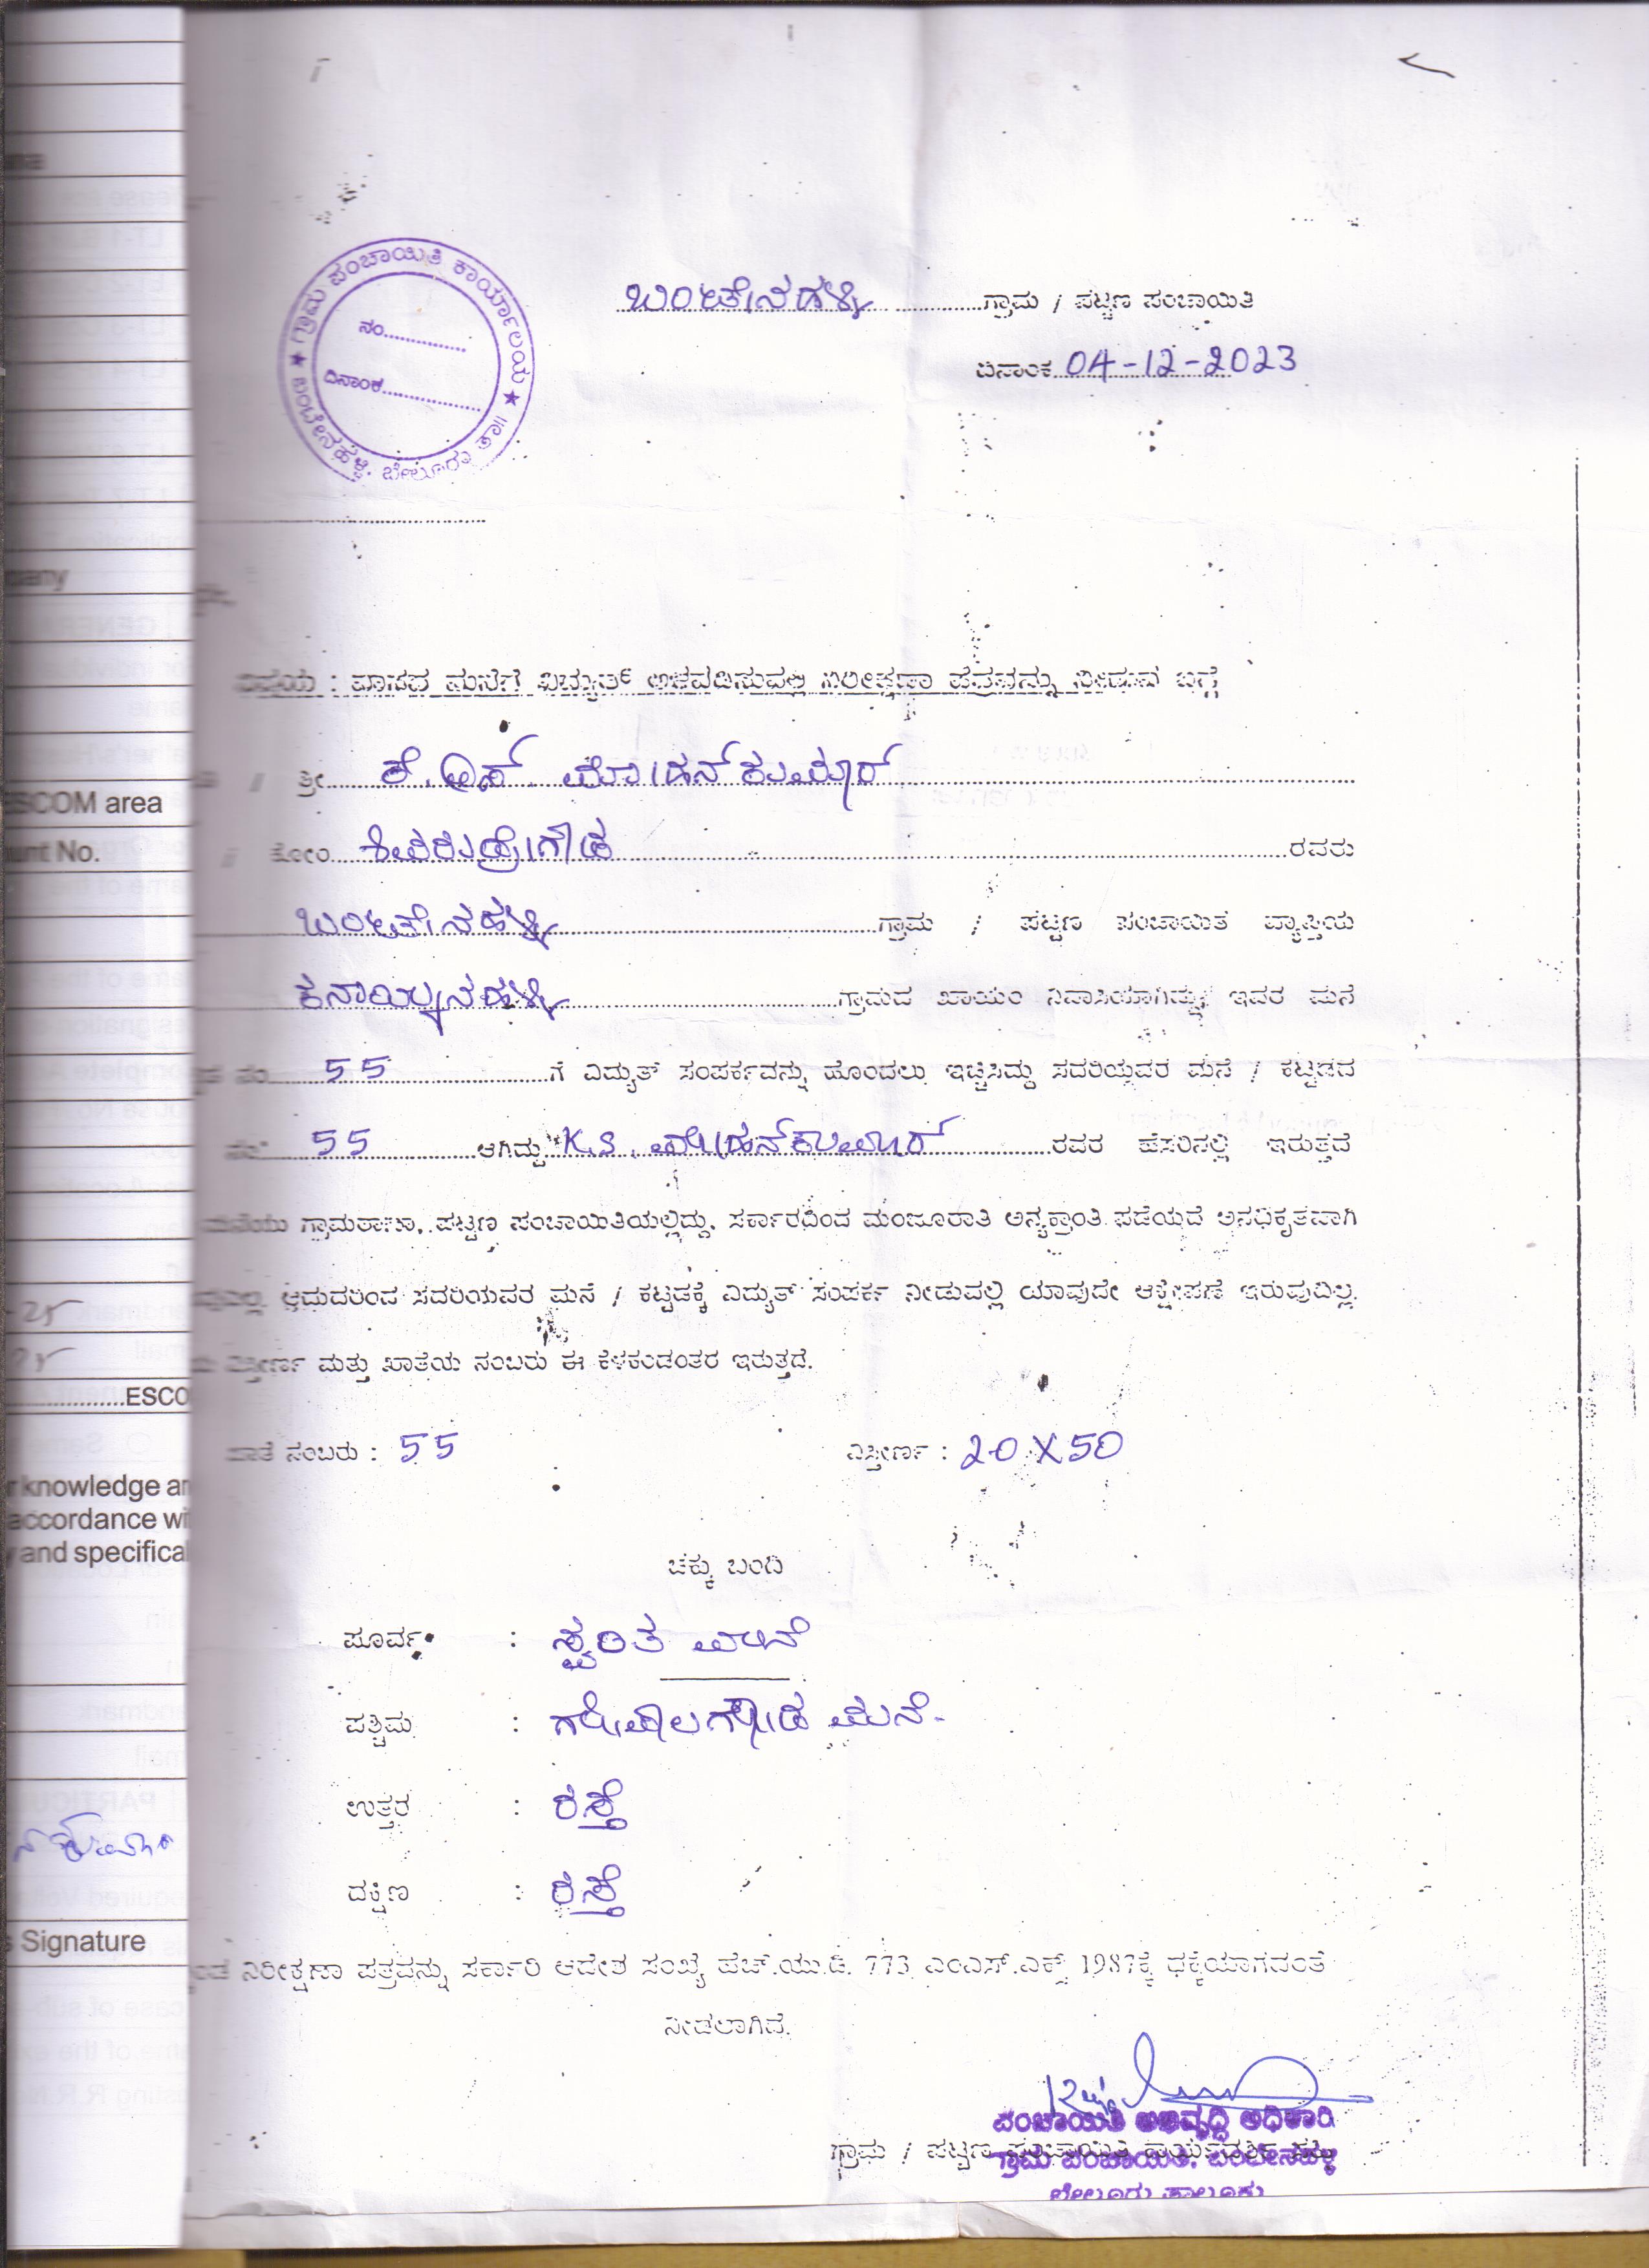 ಗ್ರಾಮ ಪಂಚಾಯಿತಿ ಕಾರ್ಯಾಲಯ ★ ಬಂಟೇನಹಳ್ಳಿ. ಬೇಲೂರು ತಾ॥ ★
ನಂ
ದಿನಾಂಕ
ಬಂಟೇನಹಳ್ಳಿ ಗ್ರಾಮ / ಪಟ್ಟಣ ಪಂಚಾಯಿತಿ
ದಿನಾಂಕ 04-12-2023
ವಿಷಯ : ವಾಸದ ಮನೆಗೆ ವಿದ್ಯುತ್ ಅಳವಡಿಸುವಲ್ಲಿ ನಿರೀಕ್ಷಣಾ ಪತ್ರವನ್ನು ನೀಡುವ ಬಗ್ಗೆ
ಶ್ರೀ ಕೆ.ಎಸ್. ಮೋಹನ್ ಕುಮಾರ್
ಕೋಂ ರವರು
ಬಂಟೇನಹಳ್ಳಿ ಗ್ರಾಮ / ಪಟ್ಟಣ ಪಂಚಾಯಿತಿ ವ್ಯಾಪ್ತಿಯ
ಕನಾಯ್ಕನಹಳ್ಳಿ ಗ್ರಾಮದ ಖಾಯಂ ನಿವಾಸಿಯಾಗಿದ್ದು, ಇವರ ಮನೆ
ನಂ 55 ಗೆ ವಿದ್ಯುತ್ ಸಂಪರ್ಕವನ್ನು ಹೊಂದಲು ಇಚ್ಛಿಸಿದ್ದು ಸದರಿಯವರ ಮನೆ / ಕಟ್ಟಡದ
ನಂ 55 ಆಗಿದ್ದು K.S. ಮೋಹನ್ ಕುಮಾರ್ ರವರ ಹೆಸರಿನಲ್ಲಿ ಇರುತ್ತದೆ
ಮನೆಯು ಗ್ರಾಮಠಾಣಾ, ಪಟ್ಟಣ ಪಂಚಾಯಿತಿಯಲ್ಲಿದ್ದು, ಸರ್ಕಾರದಿಂದ ಮಂಜೂರಾತಿ ಅನ್ಯಕ್ರಾಂತಿ ಪಡೆಯದೆ ಅನಧಿಕೃತವಾಗಿ
ಆದುದರಿಂದ ಸದರಿಯವರ ಮನೆ / ಕಟ್ಟಡಕ್ಕೆ ವಿದ್ಯುತ್ ಸಂಪರ್ಕ ನೀಡುವಲ್ಲಿ ಯಾವುದೇ ಆಕ್ಷೇಪಣೆ ಇರುವುದಿಲ್ಲ.
ವಿಸ್ತೀರ್ಣ ಮತ್ತು ಖಾತೆಯ ನಂಬರು ಈ ಕೆಳಕಂಡಂತರ ಇರುತ್ತದೆ.
ಖಾತೆ ನಂಬರು : 55 ವಿಸ್ತೀರ್ಣ : 20 X 50
ಚಕ್ಕು ಬಂದಿ
ಪೂರ್ವ : ಸ್ವಂತ ಮನೆ
ಪಶ್ಚಿಮ : ಗೋಪಾಲಗೌಡ ಮನೆ-
ಉತ್ತರ : ರಸ್ತೆ
ದಕ್ಷಿಣ : ರಸ್ತೆ
ನಿರೀಕ್ಷಣಾ ಪತ್ರವನ್ನು ಸರ್ಕಾರಿ ಆದೇಶ ಸಂಖ್ಯೆ ಹೆಚ್.ಯು.ಡಿ. 773 ಎಂಎಸ್.ಎಕ್ಸ್ 1987ಕ್ಕೆ ಧಕ್ಕೆಯಾಗದಂತೆ
ನೀಡಲಾಗಿದೆ.
ಪಂಚಾಯಿತಿ ಅಭಿವೃದ್ಧಿ ಅಧಿಕಾರಿ
ಗ್ರಾಮ / ಪಟ್ಟಣ ಪಂಚಾಯಿತಿ
ಗ್ರಾಮ ಪಂಚಾಯಿತಿ, ಬಂಟೇನಹಳ್ಳಿ
ಬೇಲೂರು ತಾಲ್ಲೂಕು
ESCOM area
No.
ESCO
knowledge
accordance
and specifica
Signature